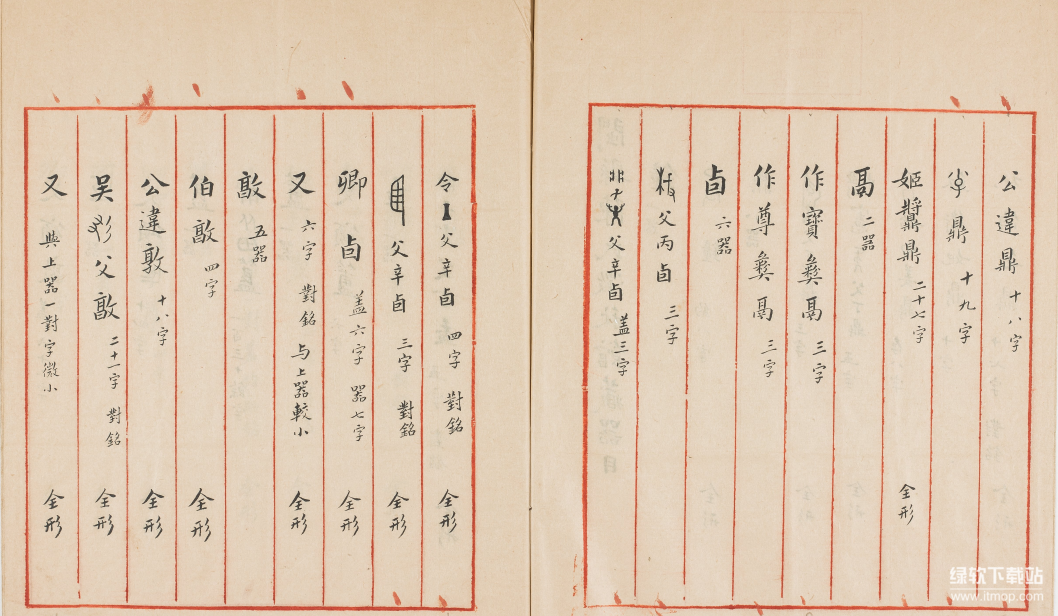 公違鼎 十八字
鼎 十九字
姬鼎 二十七字 全形
鬲 二器
作寶彝鬲 三字
作尊彝鬲 三字
卣 六器
父丙卣 三字
父辛卣 蓋三字
令父辛卣 四字 對銘 全形
父辛卣 三字 對銘 全形
卿卣 盖六字 器七字 全形
又 六字 對銘 与上器較小 全形
敦 五器
伯敦 四字 全形
公違敦 十八字 全形
吴父敦 二十一字 對銘 全形
又 與上器一對字微小 全形
绿软下载站
www.itmop.com